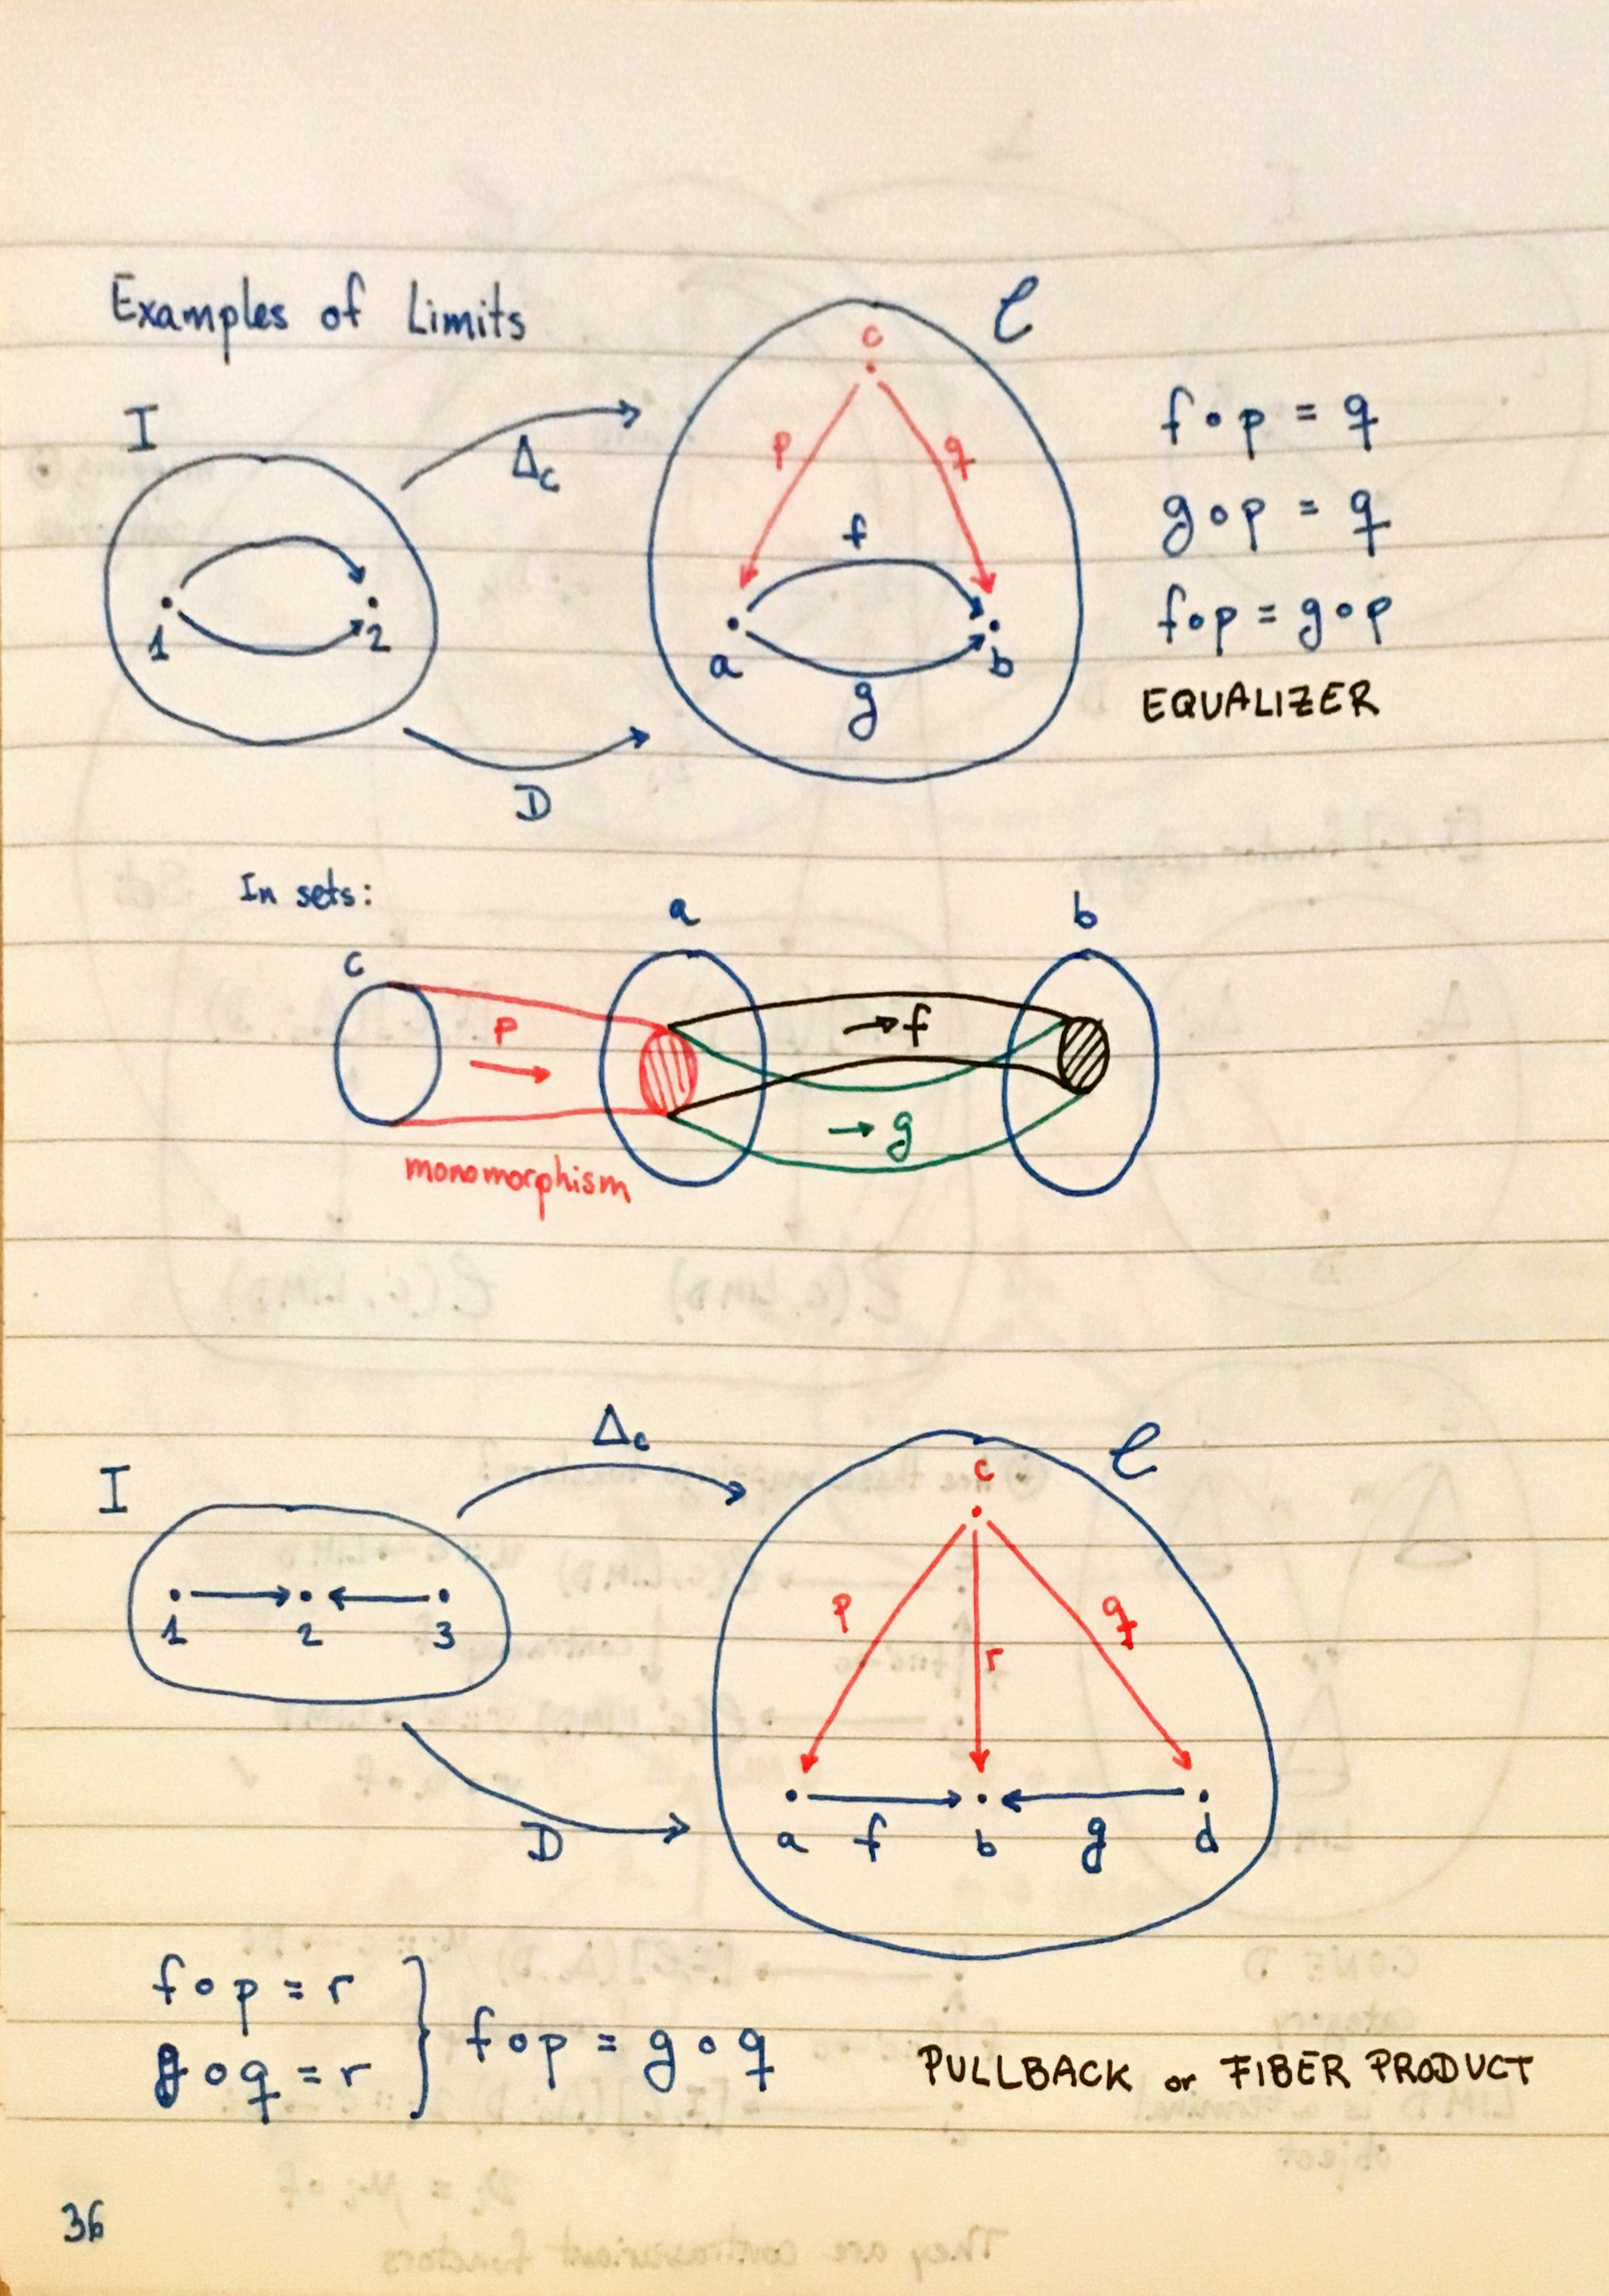 Examples of Limits
I
1
2
Δc
D
C
c
p
q
f
a
b
g
f∘p = q
g∘p = q
f∘p = g∘p
EQUALIZER
In sets:
c
a
b
p
→ f
→ g
monomorphism
I
1 2 3
Δc
D
C
c
p
r
q
a f b g d
f∘p = r
g∘q = r
f∘p = g∘q
PULLBACK or FIBER PRODUCT
36